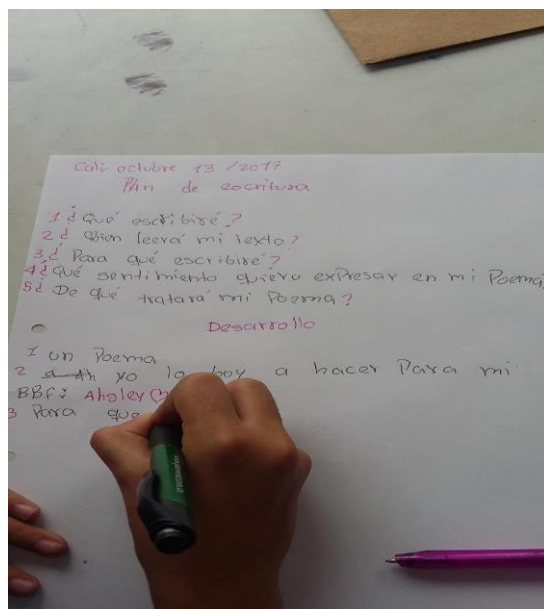 Cali octubre 13 / 2017
Plan de escritura
1 ¿Qué escribiré?
2 ¿ Quien leerá mi texto?
3 ¿ Para qué escribiré?
4 ¿Qué sentimiento quiero expresar en mi Poema?
5 ¿ De qué tratará mi Poema?
Desarrollo
1 un Poema
2 yo lo boy a hacer Para mi
BBF: Ahsley ♡
3 Para que